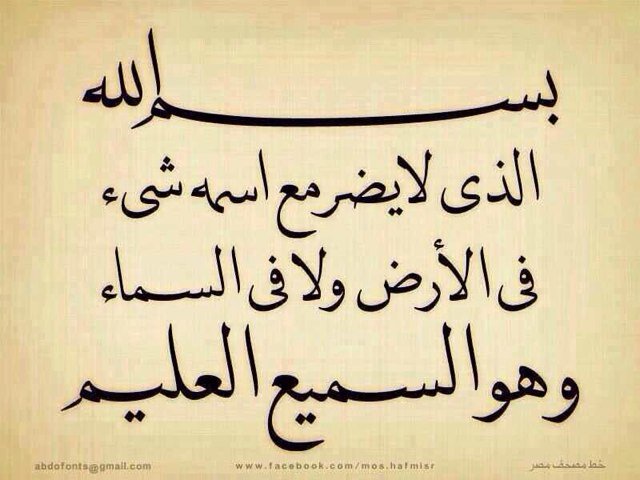 بسم الله
الذى لا يضر مع اسمه شىء
فى الأرض ولا فى السماء
وهو السميع العليم
abdofonts@gmail.com
www.facebook.com/mos.hafmisr
خط مصحف مصر